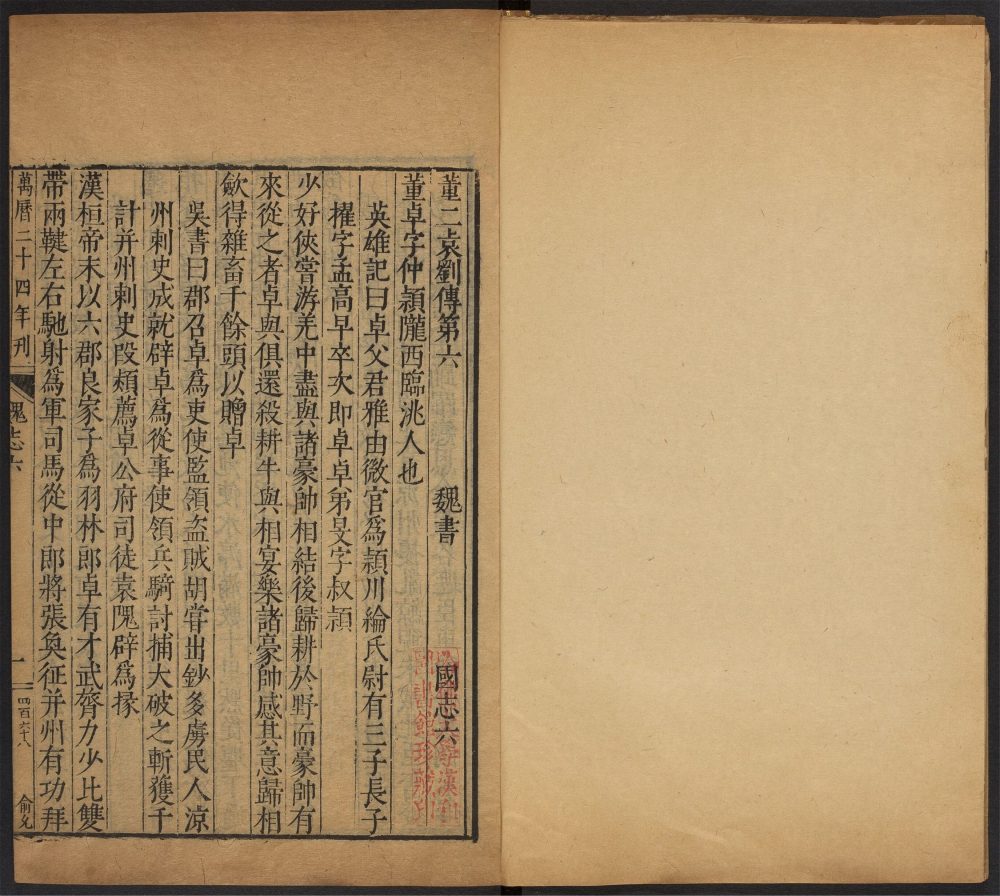 董二袁劉傳第六　魏書　國志六
董卓字仲穎隴西臨洮人也
英雄記曰卓父君雅由微官爲穎川綸氏尉有三子長子
擢字孟高早卒次即卓卓弟旻字叔穎
少好俠嘗游羌中盡與諸豪帥相結後歸耕於野而豪帥有
來從之者卓與俱還殺耕牛與相宴樂諸豪帥感其意歸相
斂得雜畜千餘頭以贈卓
吳書曰郡召卓爲吏使監領盜賊胡甞出鈔多虜民人涼
州刺史成就辟卓爲從事使領兵騎討捕大破之斬獲千
計并州刺史段熲薦卓公府司徒袁隗辟爲掾
漢桓帝末以六郡良家子爲羽林郎卓有才武膂力少比雙
帶兩鞬左右馳射爲軍司馬從中郎將張奐征并州有功拜
萬曆二十四年刊　魏志六　一　四百六十八　俞允